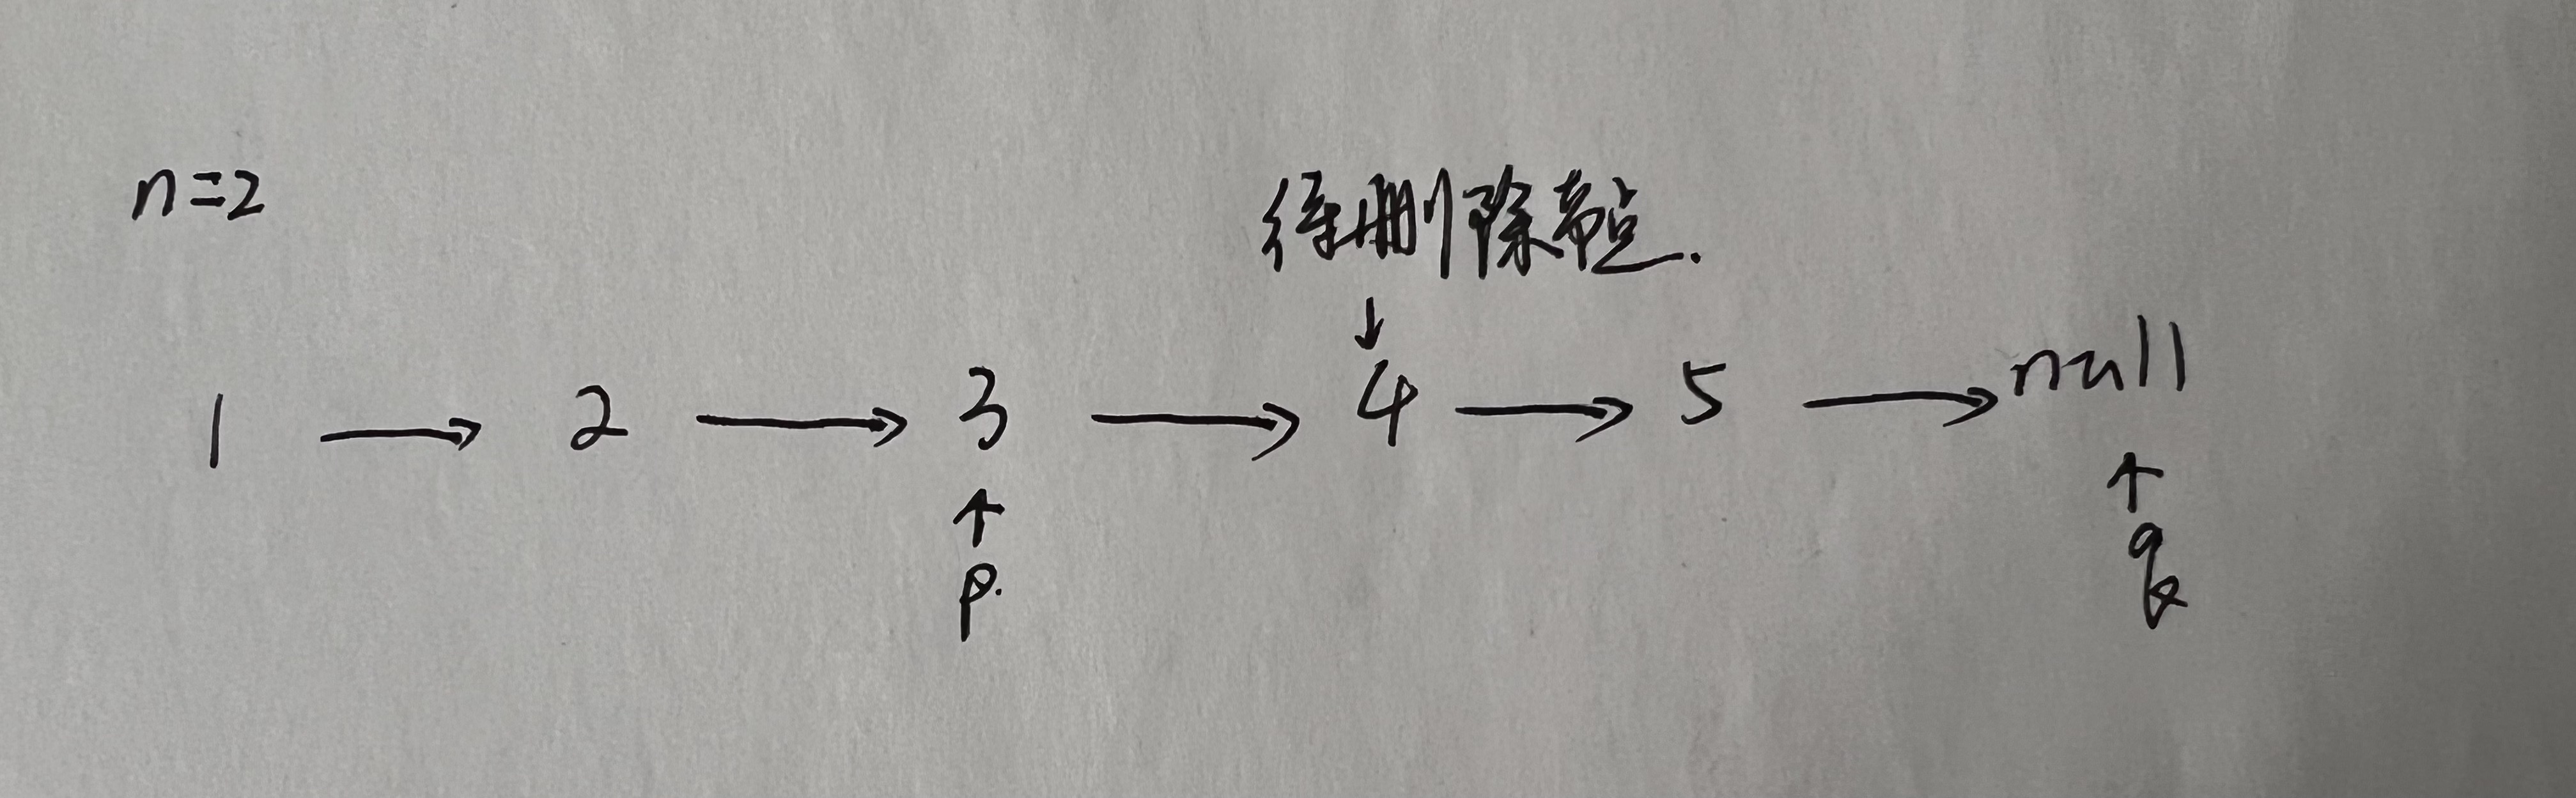 n=2
待删除节点.
↓
1 → 2 → 3 → 4 → 5 → null
↑ ↑
p. q